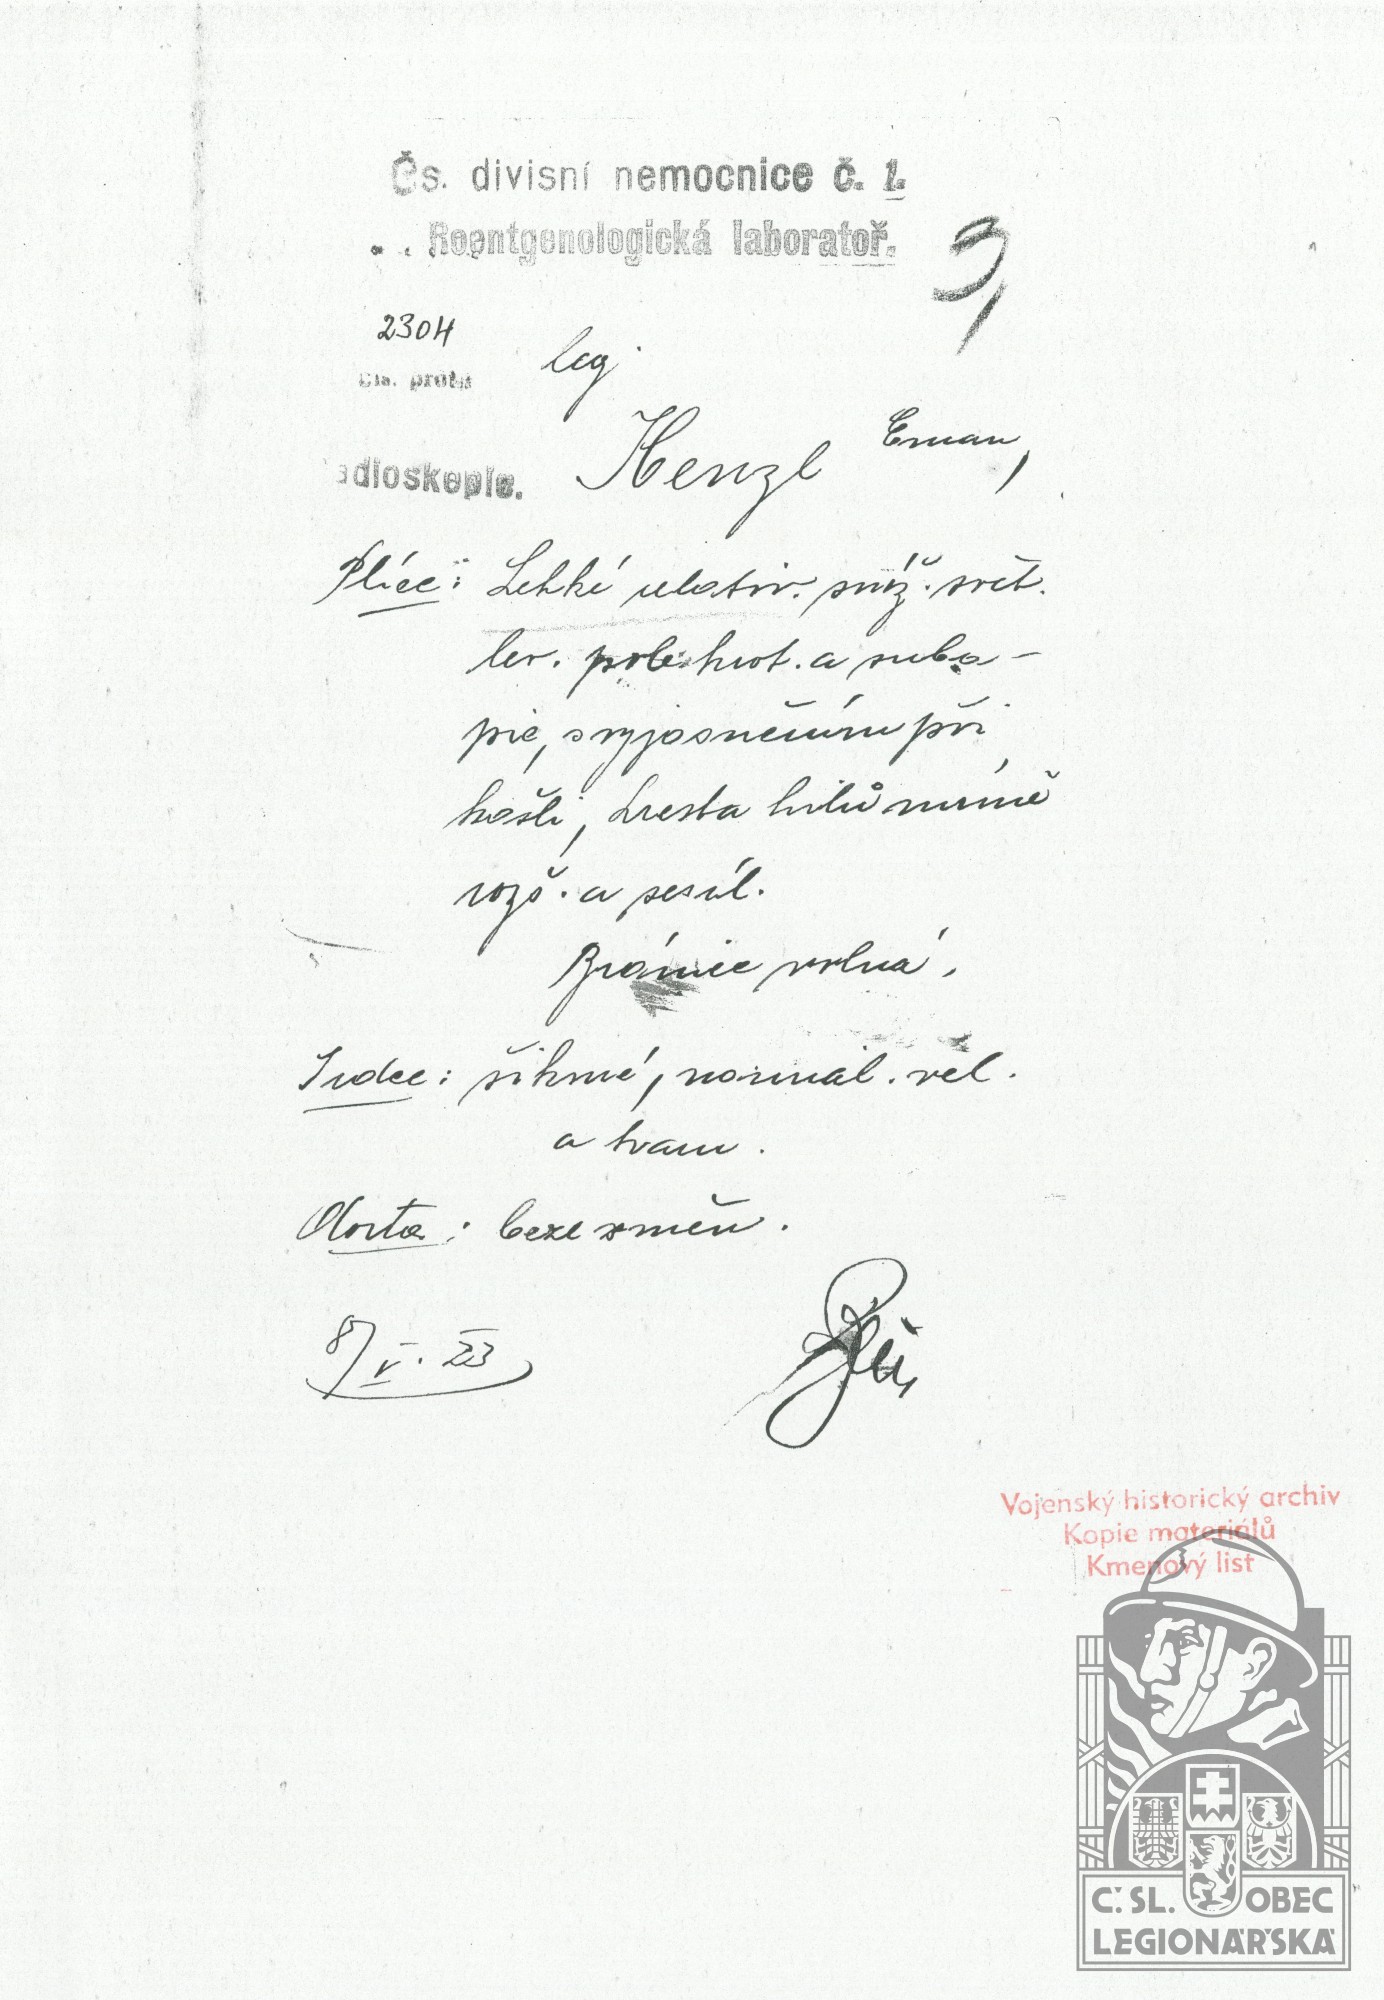 Čs. divisní nemocnice č. 1.
Roentgenologická laboratoř.
2304
Čís. proto
leg.
Henzl Eman,
adioskopie.
Plíce: Lehké relativ. sníž. svět.
lev. pole hrot. a suba-
pic, s vyjasněním při
kašli, kresba hilů mírně
rozš. a sesíl.
Bránice volná.
Srdce: šikmé, normal. vel.
a tvaru.
Aorta: beze změn.
8/V. 23
Vojenský historický archiv
Kopie materiálů
Kmenový list
Č.SL. OBEC
LEGIONÁŘSKÁ